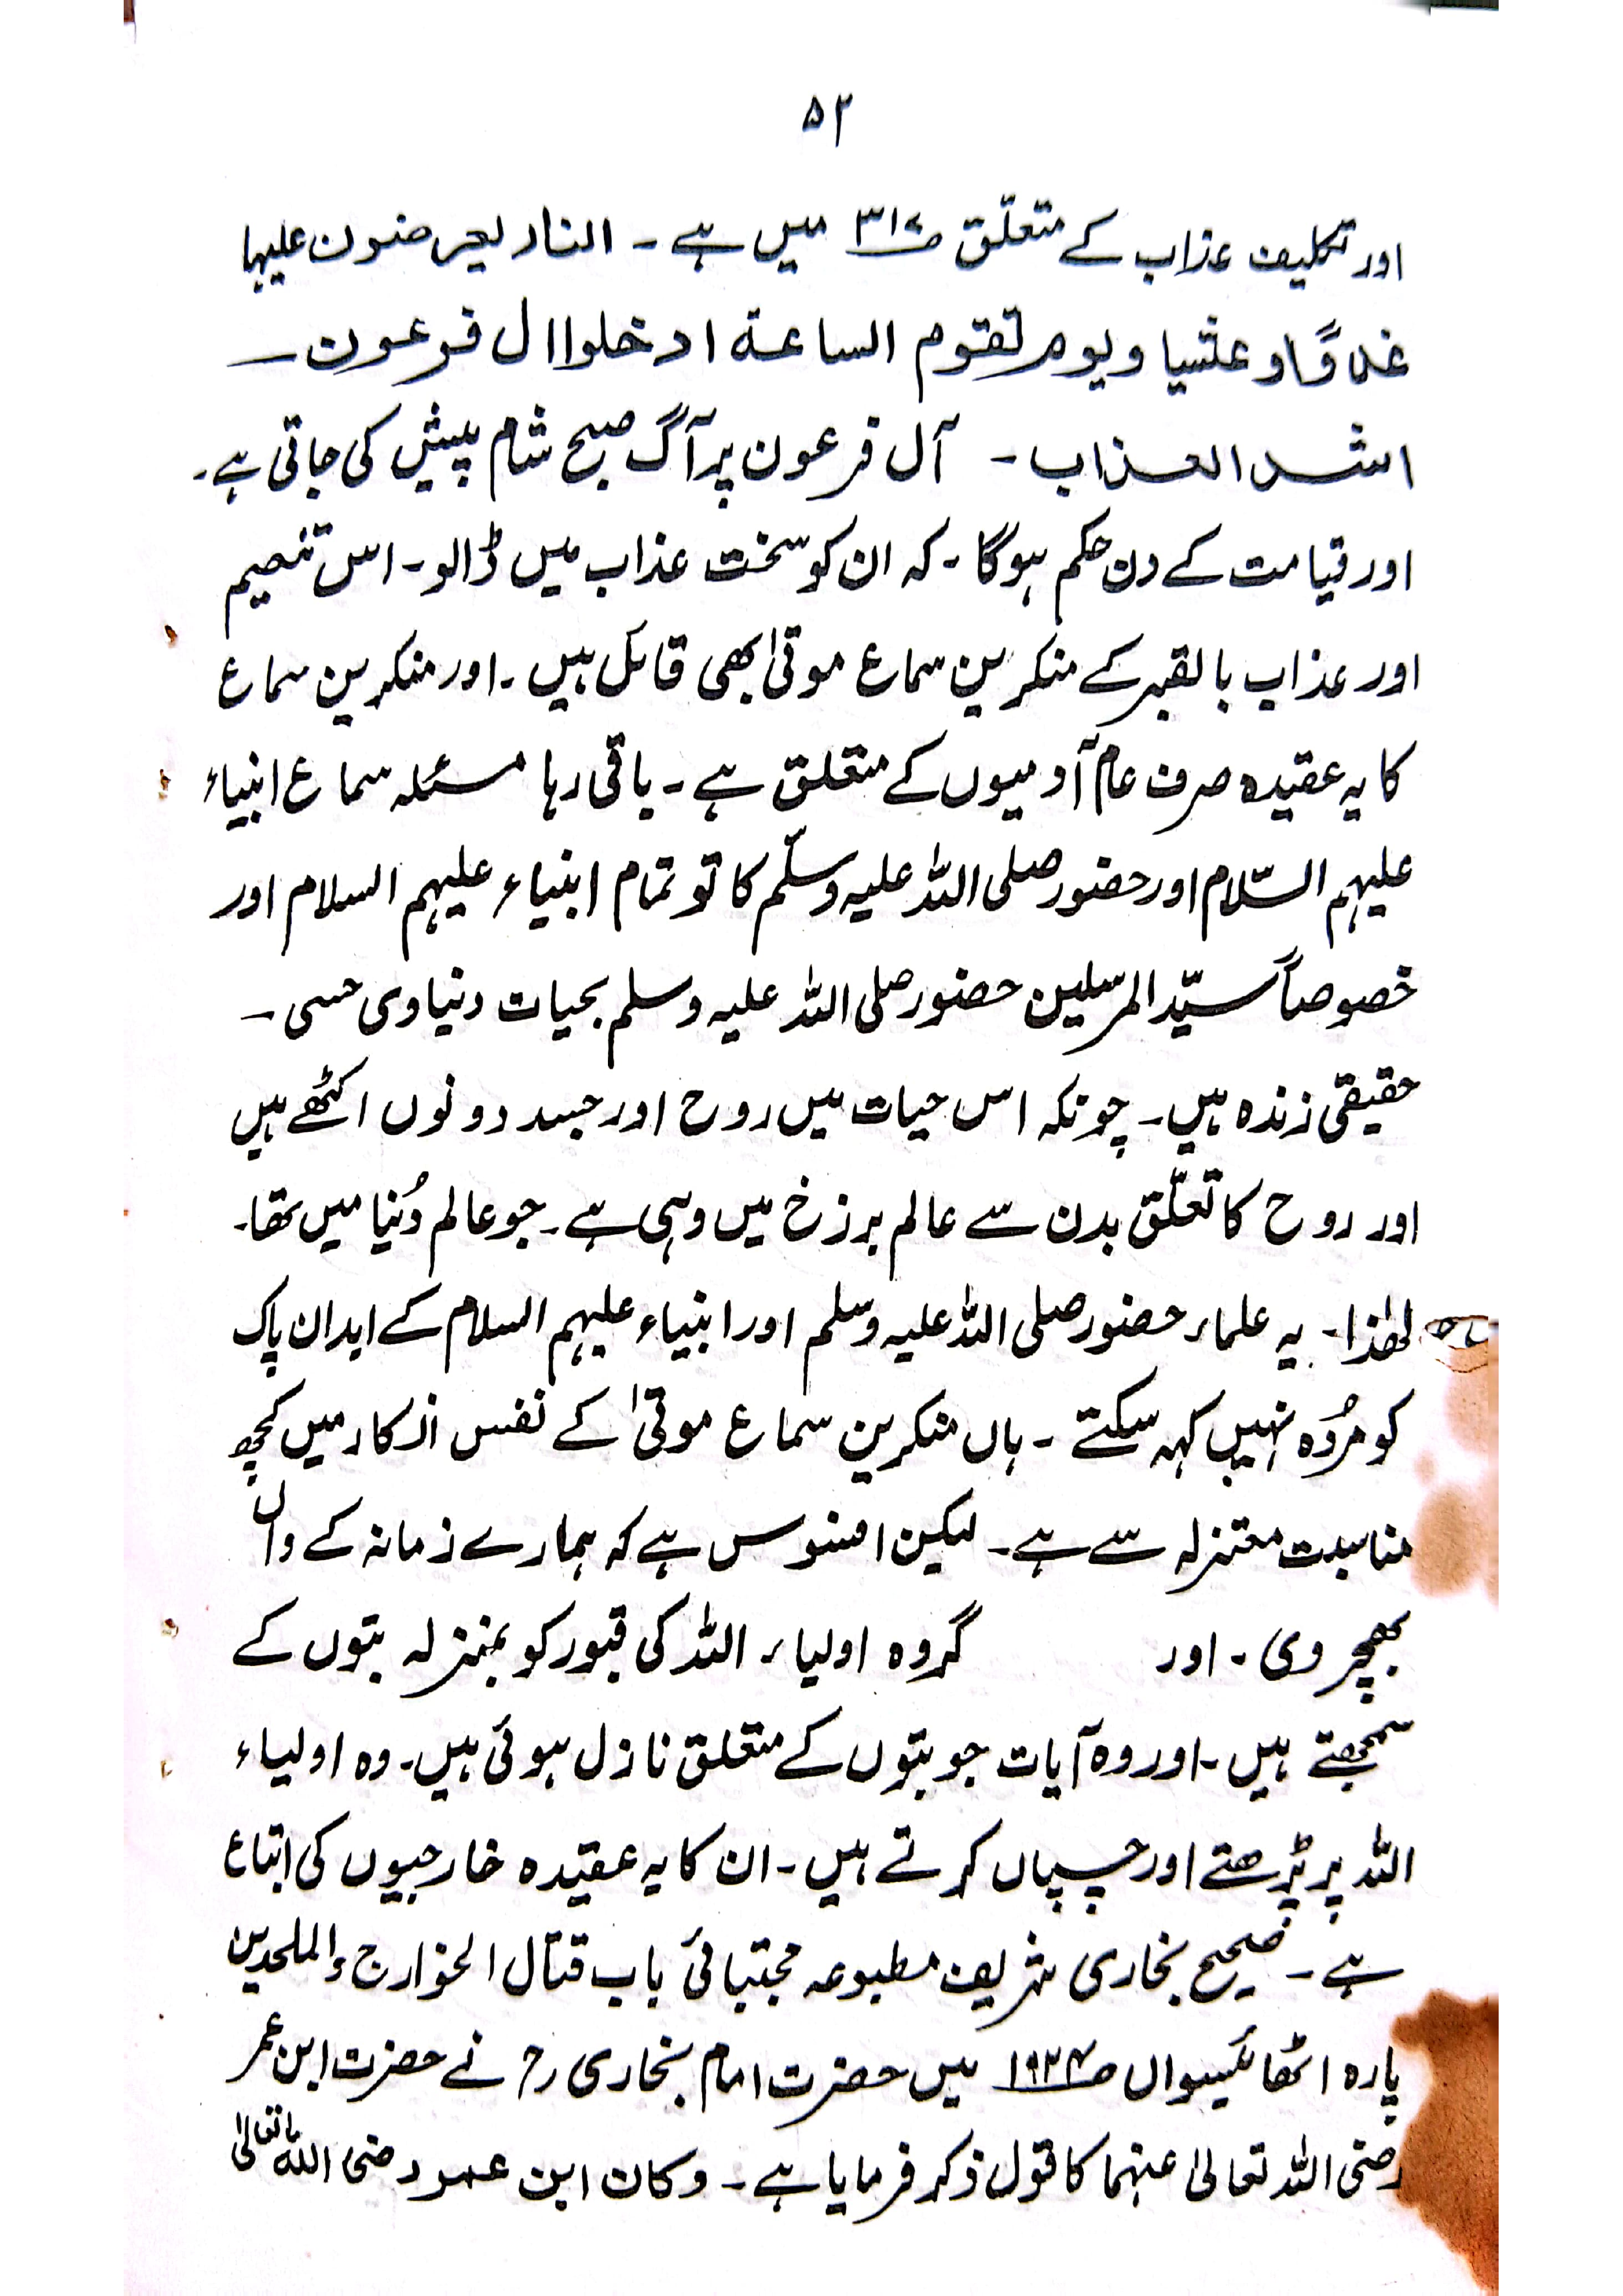 ۵۳
اور تکلیف عذاب کے متعلّق ص۳۱۷ میں ہے ۔ النار یعرضون علیہا
غدوًا و عشیا و یوم تقوم الساعة ادخلوا ال فرعون ـ
اشد العذاب ۔ آل فرعون پر آگ صبح شام پیش کی جاتی ہے ۔
اور قیامت کے دن حکم ہوگا ۔ کہ ان کو سخت عذاب میں ڈالو ۔ اس تنعیم
اور عذاب بالقبر کے منکرین سماع موتیٰ بھی قائل ہیں ۔ اور منکرین سماع
کا یہ عقیدہ صرف عام آدمیوں کے متعلق ہے ۔ باقی رہا مسئلہ سماع انبیاء
علیہم السّلام اور حضور صلی اللہ علیہ وسلّم کا تو تمام انبیاء علیہم السلام اور
خصوصاً سیّد المرسلین حضور صلی اللہ علیہ وسلم بحیات دنیاوی حسی ـ
حقیقی زندہ ہیں ۔ چونکہ اس حیات میں روح اور جسد دونوں اکٹھے ہیں
اور روح کا تعلّق بدن سے عالم برزخ میں وہی ہے ۔ جو عالم دُنیا میں تھا ۔
لھٰذا ۔ یہ علماء حضور صلی اللہ علیہ وسلم اور انبیاء علیہم السلام کے ابدان پاک
کو مُردہ نہیں کہہ سکتے ۔ ہاں منکرین سماع موتیٰ کے نفس انکار میں کچھ
مناسبت معتزلہ سے ہے ۔ لیکن افسوس ہے کہ ہمارے زمانہ کے واں
بھچروی ۔ اور گروہ اولیاء اللہ کی قبور کو بمنزلہ بتوں کے
سمجھتے ہیں ۔ اور وہ آیات جو بتوں کے متعلق نازل ہوئی ہیں ۔ وہ اولیاء
اللہ پر پڑھتے اور چسپاں کرتے ہیں ۔ ان کا یہ عقیدہ خارجیوں کی اتباع
ہے ۔ صحیح بخاری شریف مطبوعہ مجتبائی باب قتال الخوارج والملحدین
پارہ اٹھائیسواں ص۱۰۲۴ میں حضرت امام بخاری رح نے حضرت ابن عمر
رضی اللہ تعالیٰ عنہما کا قول ذکر فرمایا ہے ۔ وکان ابن عمر رضی اللہ تعالیٰ